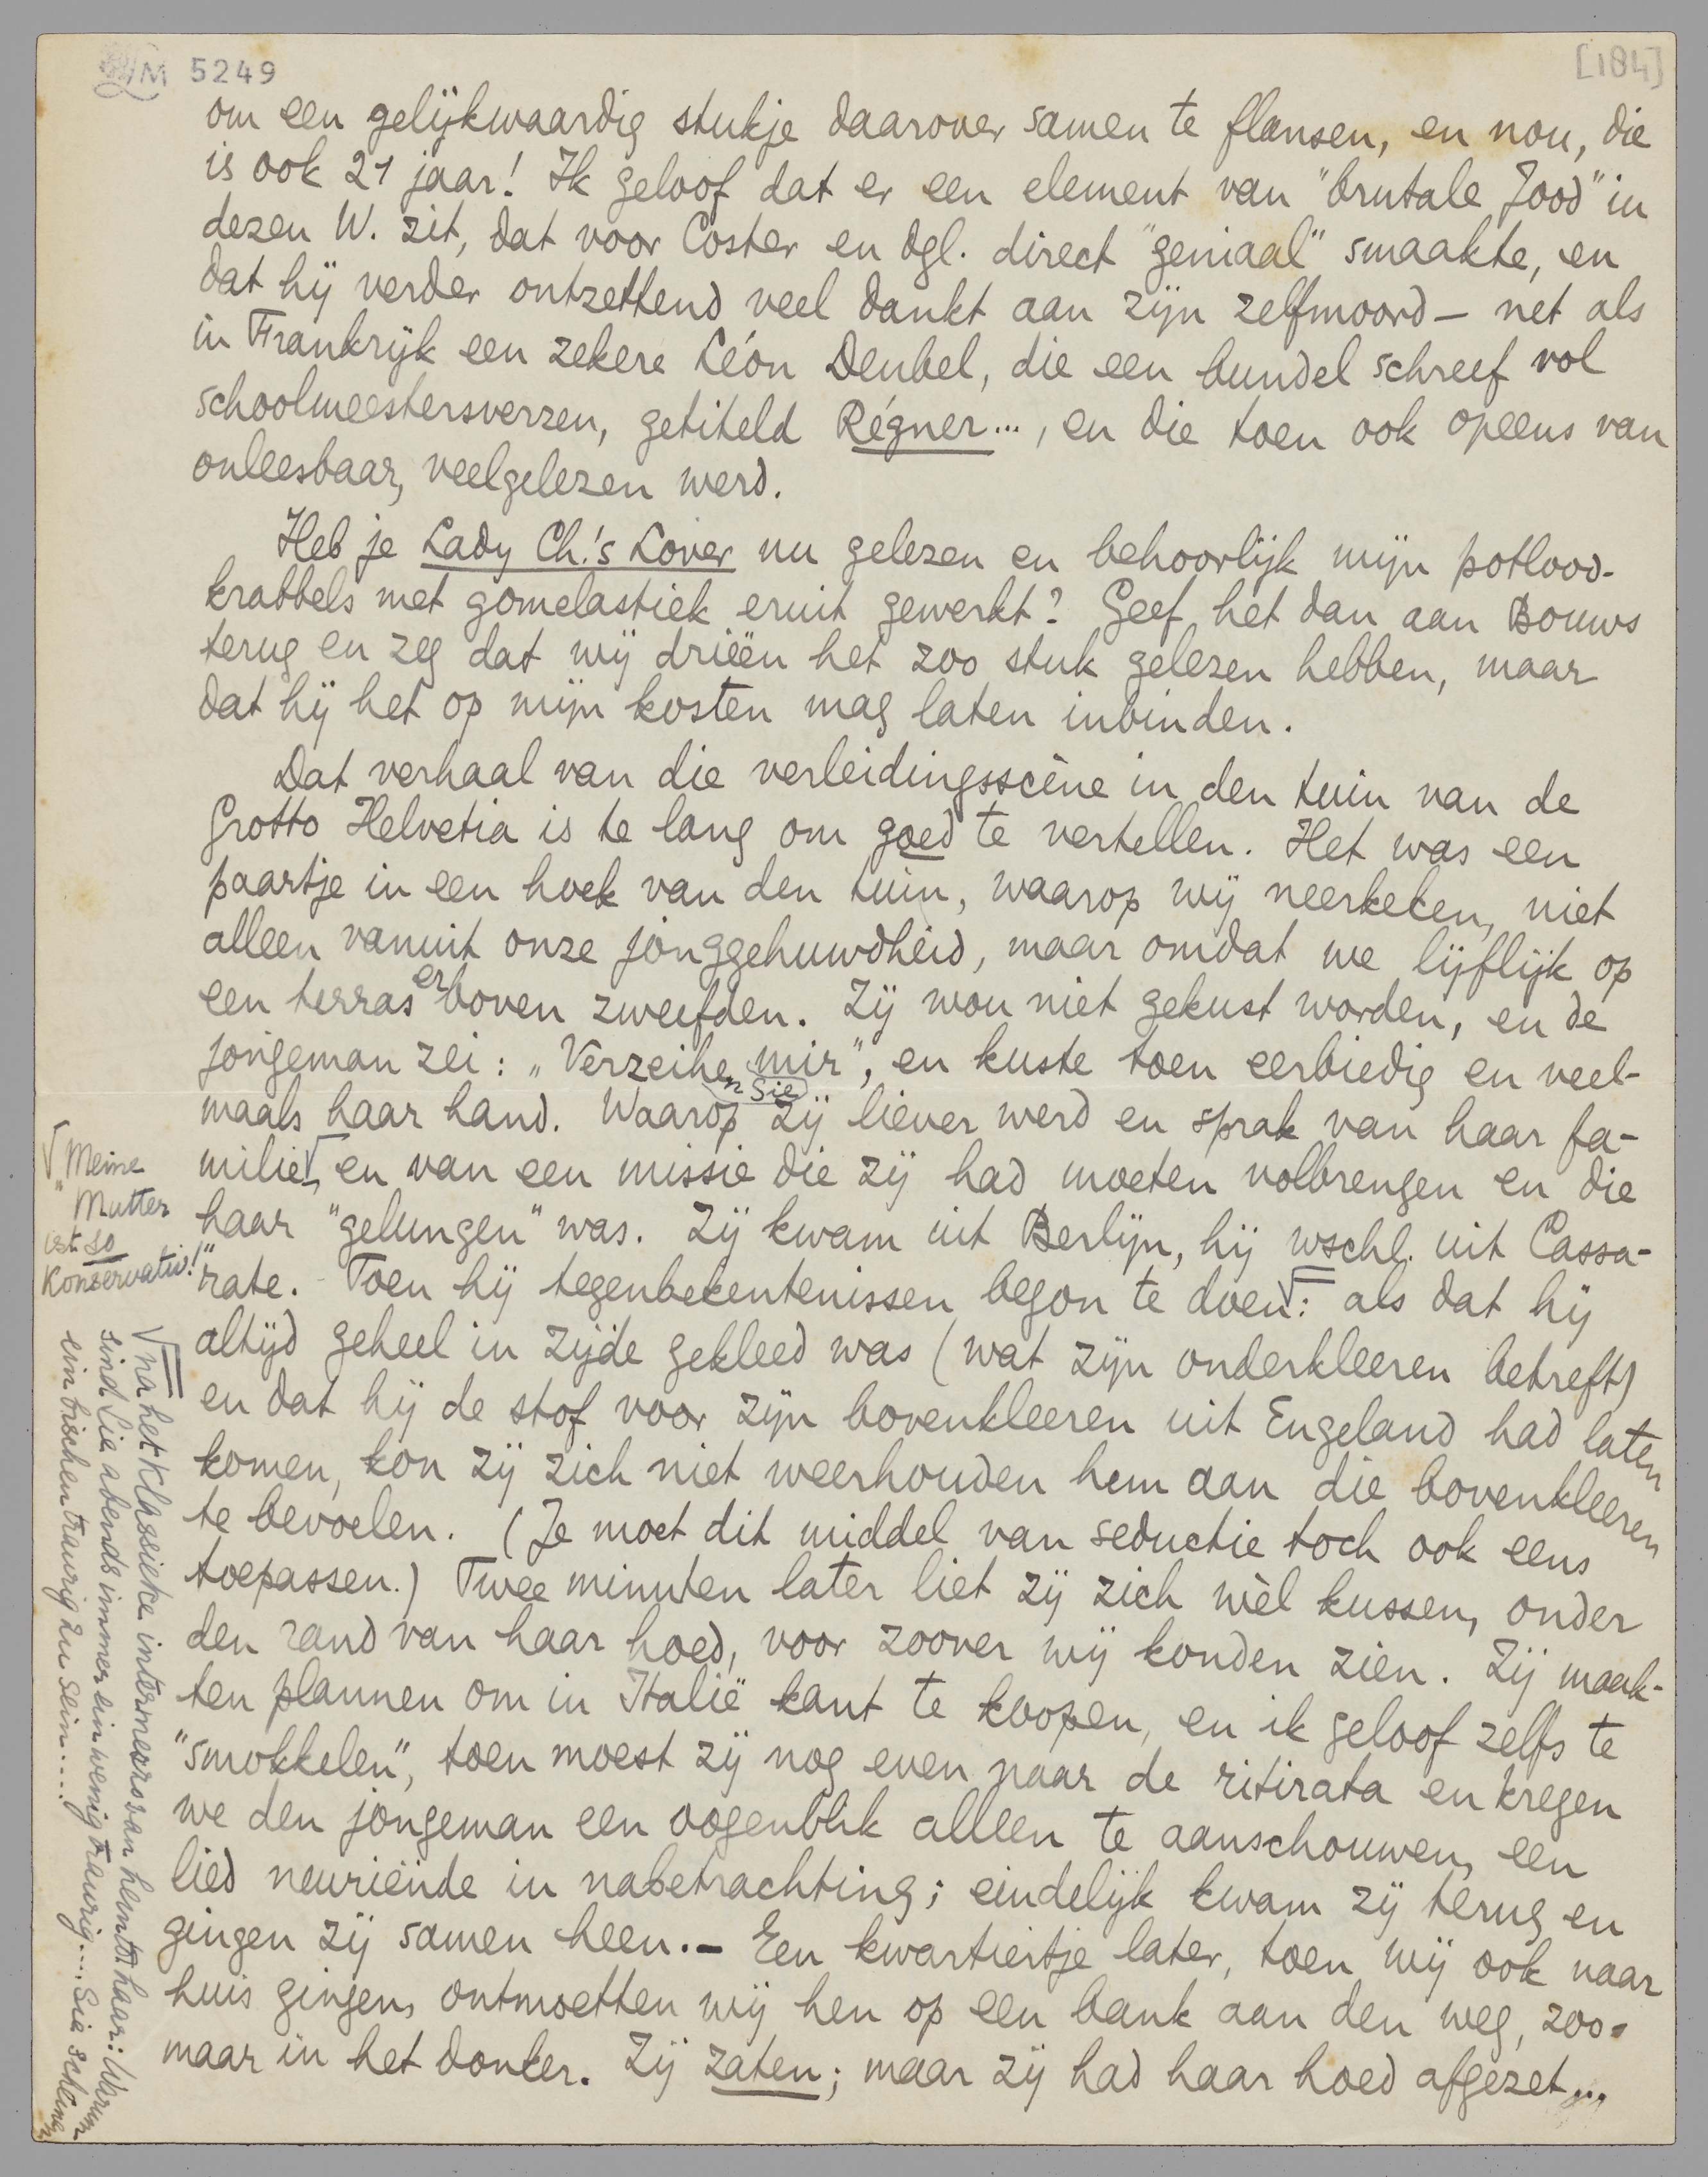 LM 5249
[184]
om een gelijkwaardig stukje daarover samen te flansen, en nou, die
is ook 21 jaar! Ik geloof dat er een element van "brutale Jood" in
dezen W. zit, dat voor Coster en dgl. direct "geniaal" smaakte, en
dat hij verder ontzettend veel dankt aan zijn zelfmoord – net als
in Frankrijk een zekere Léon Deubel, die een bundel schreef vol
schoolmeestersverzen, getiteld Régner..., en die toen ook opeens van
onleesbaar, veelgelezen werd.
Heb je Lady Ch.'s Lover nu gelezen en behoorlijk mijn potlood-
krabbels met gomelastiek eruit gewerkt? Geef het dan aan Bouws
terug en zeg dat wij drieën het zoo stuk gelezen hebben, maar
dat hij het op mijn kosten mag laten inbinden.
Dat verhaal van die verleidingsscène in den tuin van de
Grotto Helvetia is te lang om goed te vertellen. Het was een
paartje in een hoek van den tuin, waarop wij neerkeken, niet
alleen vanuit onze jonggehuwdheid, maar omdat we lijflijk op
een terras erboven zweefden. Zij wou niet gekust worden, en de
jongeman zei: „Verzeihen Sie mir", en kuste toen eerbiedig en veel-
maals haar hand. Waarop zij liever werd en sprak van haar fa-
milie√, en van een missie die zij had moeten volbrengen en die
haar "gelungen" was. Zij kwam uit Berlijn, hij wschl. uit Cassa-
rate. - Toen hij tegenbekentenissen begon te doen√: als dat hij
altijd geheel in zijde gekleed was (wat zijn onderkleeren betreft)
en dat hij de stof voor zijn bovenkleeren uit Engeland had laten
komen, kon zij zich niet weerhouden hem aan die bovenkleeren
te bevoelen. (Je moet dit middel van seductie toch ook eens
toepassen.) Twee minuten later liet zij zich wèl kussen, onder
den rand van haar hoed, voor zoover wij konden zien. Zij maak-
ten plannen om in Italië kant te koopen, en ik geloof zelfs te
"smokkelen", toen moest zij nog even naar de ritirata en kregen
we den jongeman een oogenblik alleen te aanschouwen, een
lied neuriënde in nabetrachting; eindelijk kwam zij terug en
gingen zij samen heen. – Een kwartiertje later, toen wij ook naar
huis gingen, ontmoetten wij hen op een bank aan den weg, zoo-
maar in het donker. Zij zaten; maar zij had haar hoed afgezet...
√ „Meine
Mutter
ist so
konservativ!"
√ na het klassieke intermezzo van hem tot haar: Warum
sind Sie abends immer ein wenig traurig.... Sie scheinen
ein bischen traurig zu sein.....